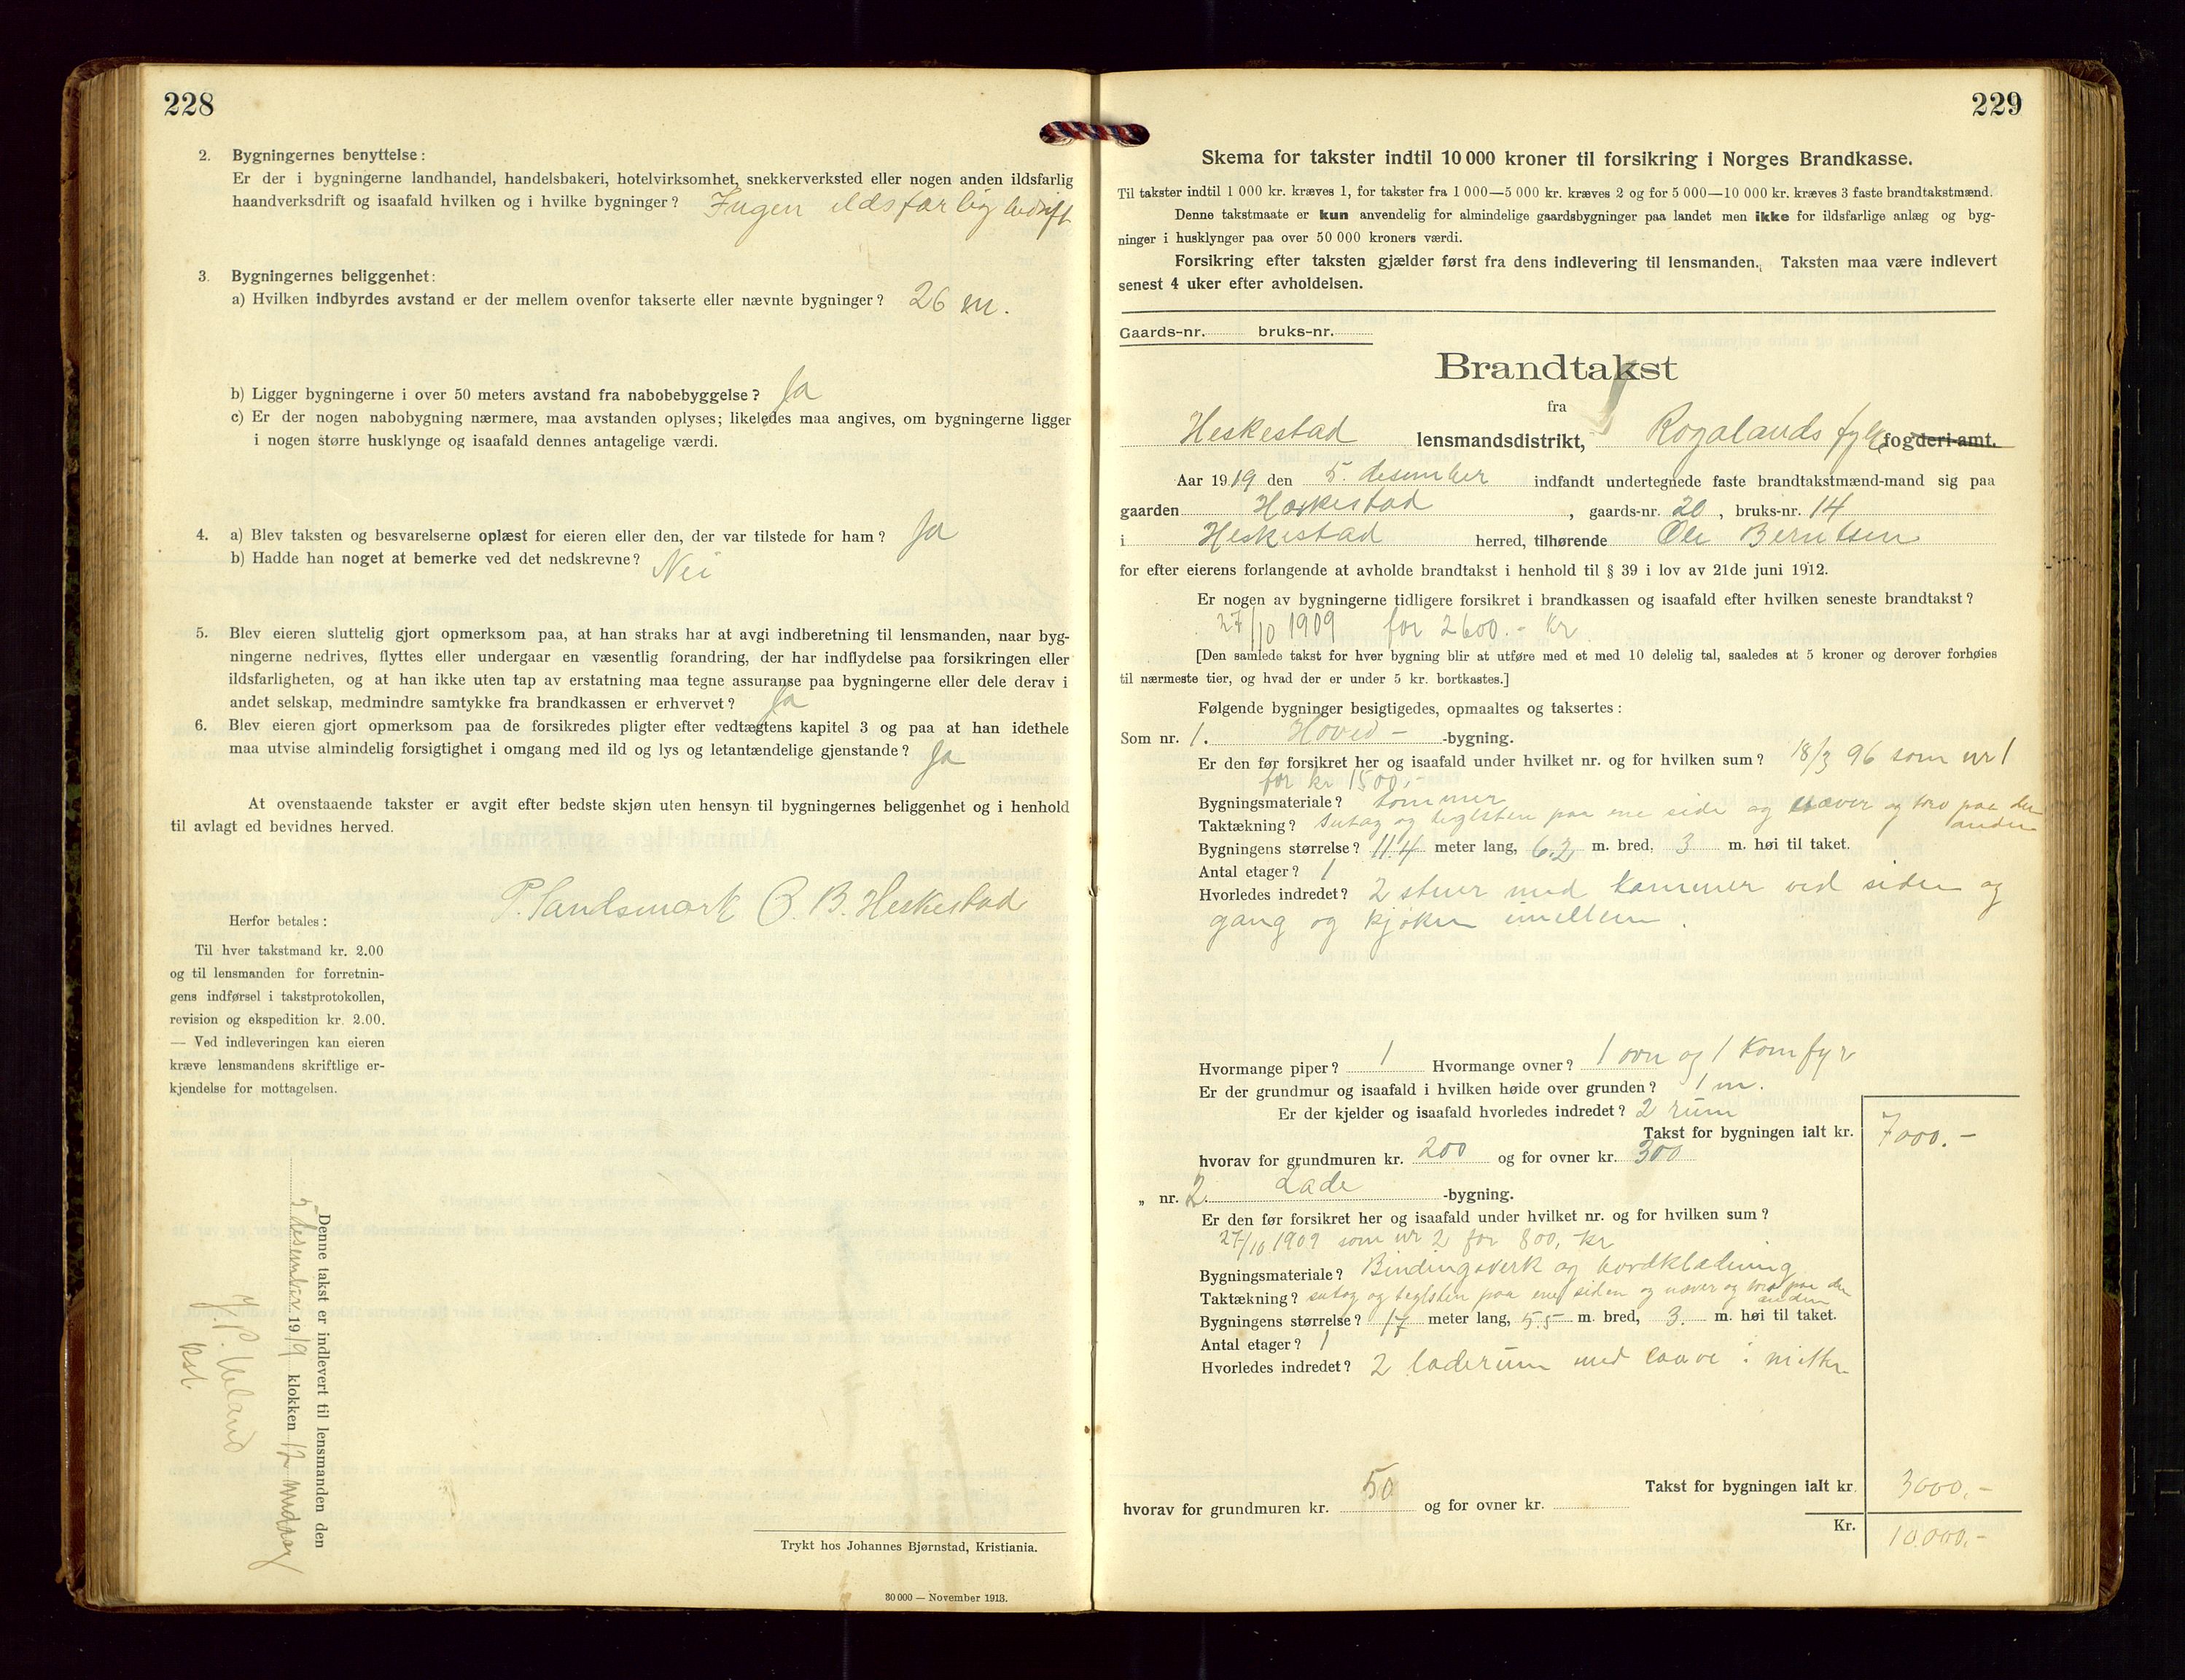 228
2. Bygningernes benyttelse:
Er der i bygningerne landhandel, handelsbakeri, hotelvirksomhet, snekkerverksted eller nogen anden ildsfarlig
haandverksdrift og isaafald hvilken og i hvilke bygninger? Ingen ildsfarlig bedrift
3. Bygningernes beliggenhet:
a) Hvilken indbyrdes avstand er der mellem ovenfor takserte eller nævnte bygninger? 26 m.
b) Ligger bygningerne i over 50 meters avstand fra nabobebyggelse? Ja
c) Er der nogen nabobygning nærmere, maa avstanden oplyses; likeledes maa angives, om bygningerne ligger
i nogen større husklynge og isaafald dennes antagelige værdi.
4. a) Blev taksten og besvarelserne oplæst for eieren eller den, der var tilstede for ham? Ja
b) Hadde han noget at bemerke ved det nedskrevne? Nei
5. Blev eieren sluttelig gjort opmerksom paa, at han straks har at avgi indberetning til lensmanden, naar byg-
ningerne nedrives, flyttes eller undergaar en væsentlig forandring, der har indflydelse paa forsikringen eller
ildsfarligheten, og at han ikke uten tap av erstatning maa tegne assuranse paa bygningerne eller dele derav i
andet selskap, medmindre samtykke fra brandkassen er erhvervet? Ja
6. Blev eieren gjort opmerksom paa de forsikredes pligter efter vedtægtens kapitel 3 og paa at han idethele
maa utvise almindelig forsigtighet i omgang med ild og lys og letantændelige gjenstande? Ja
At ovenstaaende takster er avgit efter bedste skjøn uten hensyn til bygningernes beliggenhet og i henhold
til avlagt ed bevidnes herved.
P. Sandsmark O. B. Heskestad
Herfor betales:
Til hver takstmand kr. 2.00
og til lensmanden for forretnin-
gens indførsel i takstprotokollen,
revision og ekspedition kr. 2.00.
— Ved indleveringen kan eieren
kræve lensmandens skriftlige er-
kjendelse for mottagelsen.
Denne takst er indlevert til lensmanden den
5 desember 1919 klokken 12 middag
Trykt hos Johannes Bjørnstad, Kristiania.
30 000 — November 1913.
229
Skema for takster indtil 10 000 kroner til forsikring i Norges Brandkasse.
Til takster indtil 1 000 kr. kræves 1, for takster fra 1 000—5 000 kr. kræves 2 og for 5 000—10 000 kr. kræves 3 faste brandtakstmænd.
Denne takstmaate er kun anvendelig for almindelige gaardsbygninger paa landet men ikke for ildsfarlige anlæg og byg-
ninger i husklynger paa over 50 000 kroners værdi.
Forsikring efter taksten gjælder først fra dens indlevering til lensmanden. Taksten maa være indlevert
senest 4 uker efter avholdelsen.
Gaards-nr. bruks-nr.
Brandtakst
fra
Heskestad lensmandsdistrikt, Rogalands fylke fogderi-amt.
Aar 1919 den 5. desember indfandt undertegnede faste brandtakstmænd-mand sig paa
gaarden Heskestad, gaards-nr. 20, bruks-nr. 14
i Heskestad herred, tilhørende Ole Berntsen
for efter eierens forlangende at avholde brandtakst i henhold til § 39 i lov av 21de juni 1912.
Er nogen av bygningerne tidligere forsikret i brandkassen og isaafald efter hvilken seneste brandtakst?
27/10 1909 for 2600.- kr
[Den samlede takst for hver bygning blir at utføre med et med 10 delelig tal, saaledes at 5 kroner og derover forhøies
til nærmeste tier, og hvad der er under 5 kr. bortkastes.]
Følgende bygninger besigtigedes, opmaaltes og taksertes:
Som nr. 1. Hoved- -bygning.
Er den før forsikret her og isaafald under hvilket nr. og for hvilken sum? 18/3 96 som nr 1
for kr 1500,-
Bygningsmateriale? tømmer
Taktækning? sutag og teglsten paa ene side og næver og torv paa den
anden
Bygningens størrelse? 11.4 meter lang, 6.2 m. bred, 3 m. høi til taket.
Antal etager? 1
Hvorledes indredet? 2 stuer med kammer ved siden og
gang og kjøken imellem.
Hvormange piper? 1 Hvormange ovner? 1 ovn og 1 komfyr
Er der grundmur og isaafald i hvilken høide over grunden? 1 m.
Er der kjelder og isaafald hvorledes indredet? 2 rum
Takst for bygningen ialt kr. 7000.-
hvorav for grundmuren kr. 200 og for ovner kr. 300
„ nr. 2. Lade -bygning.
Er den før forsikret her og isaafald under hvilket nr. og for hvilken sum?
27/10 1909 som nr 2 for 800,- kr
Bygningsmateriale? Bindingsverk og bordklædning
Taktækning? sutag og teglsten paa ene siden og næver og torv paa den
anden
Bygningens størrelse? 17 meter lang, 5.5 m. bred, 3. m. høi til taket.
Antal etager? 1
Hvorledes indredet? 2 laderum med laave i mitten
Takst for bygningen ialt kr. 3000,-
hvorav for grundmuren kr. 50 og for ovner kr.
Kr. 10.000,-